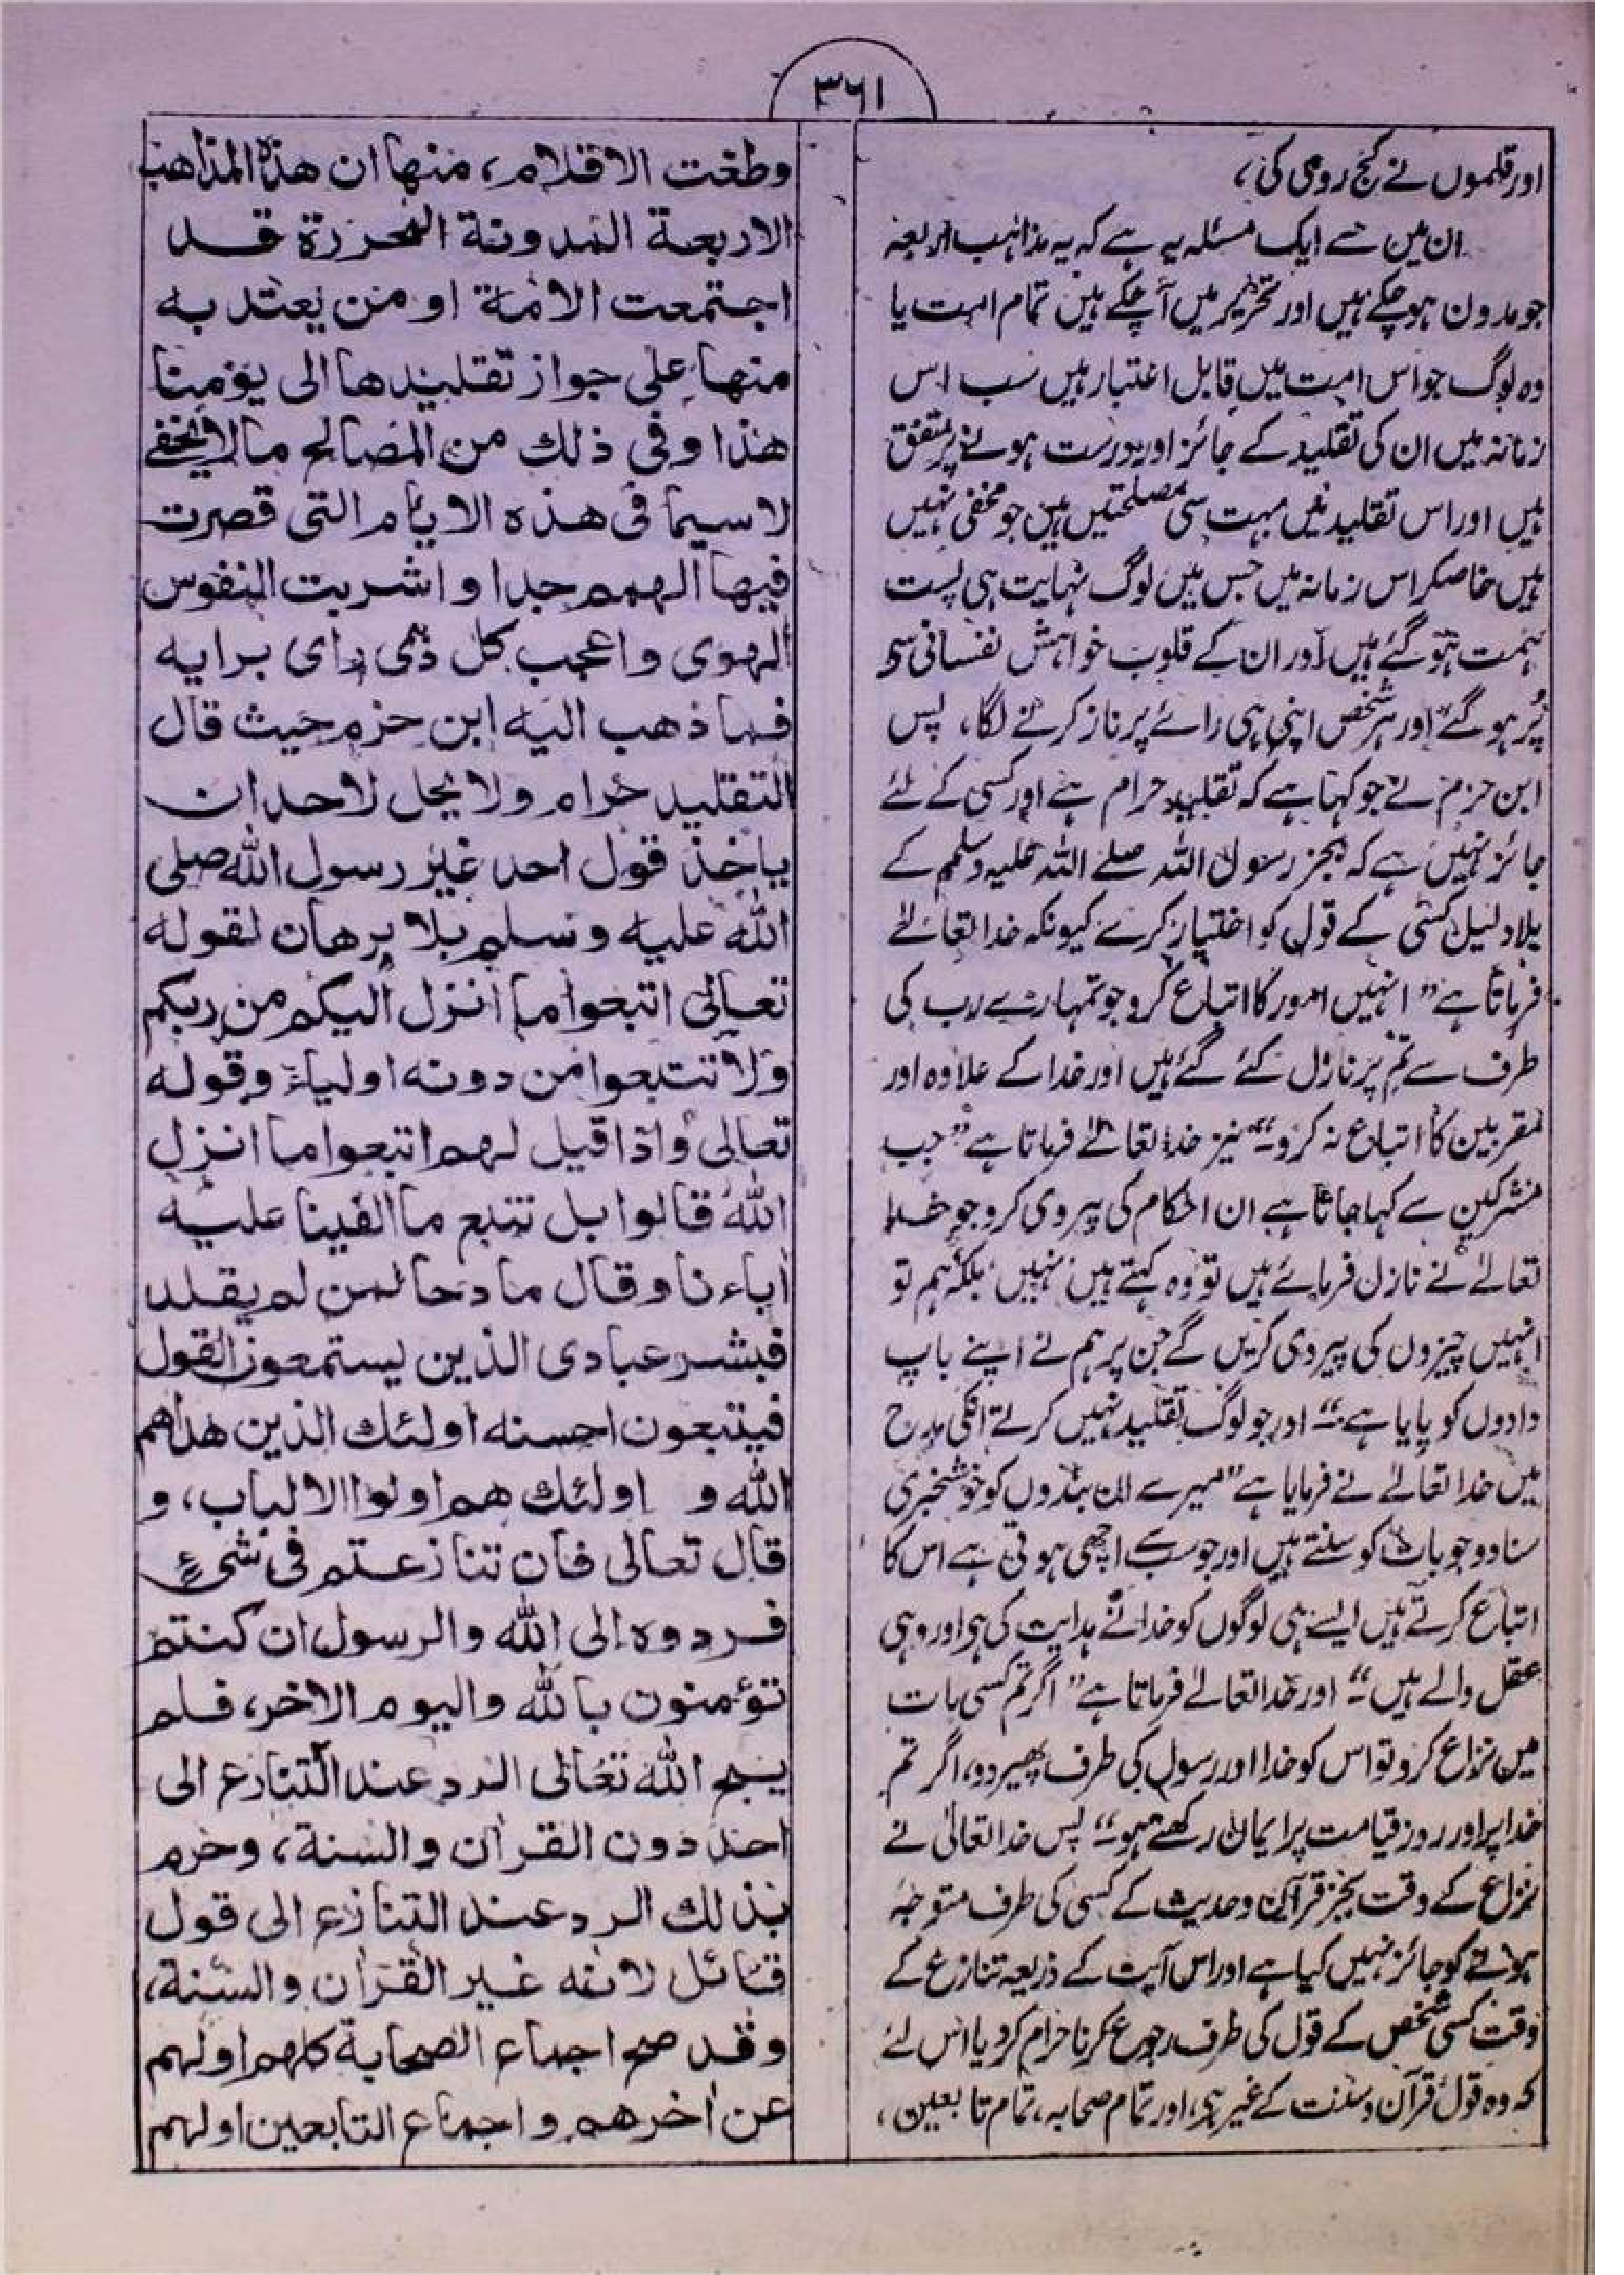 ۳۶۱
اور قلموں نے کج روی کی،
ان میں سے ایک مسئلہ یہ ہے کہ یہ مذاہب اربعہ
جو مدون ہو چکے ہیں اور تحریر میں آ چکے ہیں تمام امت یا
وہ لوگ جو اس امت میں قابل اعتبار ہیں سب اس
زمانہ میں ان کی تقلید کے جائز اور درست ہونے پر متفق
ہیں اور اس تقلید میں بہت سی مصلحتیں ہیں جو مخفی نہیں
ہیں خاصکر اس زمانہ میں جس میں لوگ نہایت ہی پست
ہمت ہو گئے ہیں اور ان کے قلوب خواہش نفسانی سے
پُر ہو گئے اور ہر شخص اپنی ہی رائے پر ناز کرنے لگا، پس
ابن حزم نے جو کہا ہے کہ تقلید حرام ہے اور کسی کے لئے
جائز نہیں ہے کہ بجز رسول اللہ صلے اللہ علیہ وسلم کے
بلا دلیل کسی کے قول کو اختیار کرے کیونکہ خدا تعالے
فرماتا ہے "انہیں امور کا اتباع کرو جو تمہارے رب کی
طرف سے تم پر نازل کئے گئے ہیں اور خدا کے علاوہ اور
مقربین کا اتباع نہ کرو۔" نیز خدا تعالے فرماتا ہے "جب
مشرکین سے کہا جاتا ہے ان احکام کی پیروی کرو جو خدا
تعالے نے نازل فرمائے ہیں تو وہ کہتے ہیں نہیں بلکہ ہم تو
انہیں چیزوں کی پیروی کریں گے جن پر ہم نے اپنے باپ
دادوں کو پایا ہے۔" اور جو لوگ تقلید نہیں کرتے انکی مدح
میں خدا تعالے نے فرمایا ہے "میرے ان بندوں کو خوشخبری
سنا دو جو بات کو سنتے ہیں اور جو سب سے اچھی ہوتی ہے اس کا
اتباع کرتے ہیں ایسے ہی لوگوں کو خدا نے ہدایت کی ہی اور وہی
عقل والے ہیں۔" اور خدا تعالے فرماتا ہے "اگر تم کسی بات
میں نزاع کرو تو اس کو خدا اور رسول کی طرف پھیر دو، اگر تم
خدا پر اور روز قیامت پر ایمان رکھتے ہو۔" پس خدا تعالیٰ نے
نزاع کے وقت بجز قرآن و حدیث کے کسی کی طرف متوجہ
ہونے کو جائز نہیں کیا ہے اور اس آیت کے ذریعہ تنازع کے
وقت کسی شخص کے قول کی طرف رجوع کرنا حرام کر دیا اس لئے
کہ وہ قول قرآن و سنت کے غیر ہی، اور تمام صحابہ، تمام تابعین،
وطغت الاقلام، منها ان هذه المذاهب
الاربعة المدونة المحررة قد
اجتمعت الامة او من يعتد به
منها على جواز تقليدها الى يومنا
هذا وفى ذلك من المصالح مالايخفى
لاسيما فى هذه الايام التى قصرت
فيها الهمم جدا واشربت النفوس
الهوى واعجب كل ذى راى برايه
فما ذهب اليه ابن حزم حيث قال
التقليد حرام ولا يحل لاحد ان
ياخذ قول احد غير رسول الله صلى
الله عليه وسلم بلا برهان لقوله
تعالى اتبعوا ما انزل اليكم من ربكم
ولا تتبعوا من دونه اولياء وقوله
تعالى واذا قيل لهم اتبعوا ما انزل
الله قالوا بل نتبع ما الفينا عليه
اباءنا وقال مادحا لمن لم يقلد
فبشر عبادى الذين يستمعون القول
فيتبعون احسنه اولئك الذين هداهم
الله و اولئك هم اولوا الالباب، و
قال تعالى فان تنازعتم فى شئ
فردوه الى الله والرسول ان كنتم
تؤمنون بالله واليوم الاخر، فلم
يبح الله تعالى الرد عند التنازع الى
احد دون القران والسنة، وحرم
بذلك الرد عند التنازع الى قول
قائل لانه غير القران والسنة،
وقد صح اجماع الصحابة كلهم اولهم
عن اخرهم واجماع التابعين اولهم